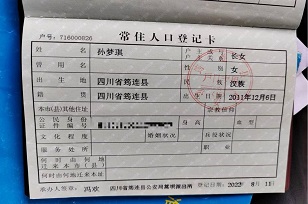 常住人口登记卡
户号：716000026
姓名 孙梦琪 户主或与户主关系 长女
曾用名 性别 女
出生地 四川省筠连县 民族 汉族
籍贯 四川省筠连县 出生日期 2011年12月6日
本市(县)其他住址 宗教信仰
公民身份证件编号 身高 血型
文化程度 婚姻状况 兵役状况
服务处所
何时由何地迁来本市(县)
何时由何地迁来本址
承办人签章：冯欢 四川省筠连县公安局 登记日期：2022 8月11